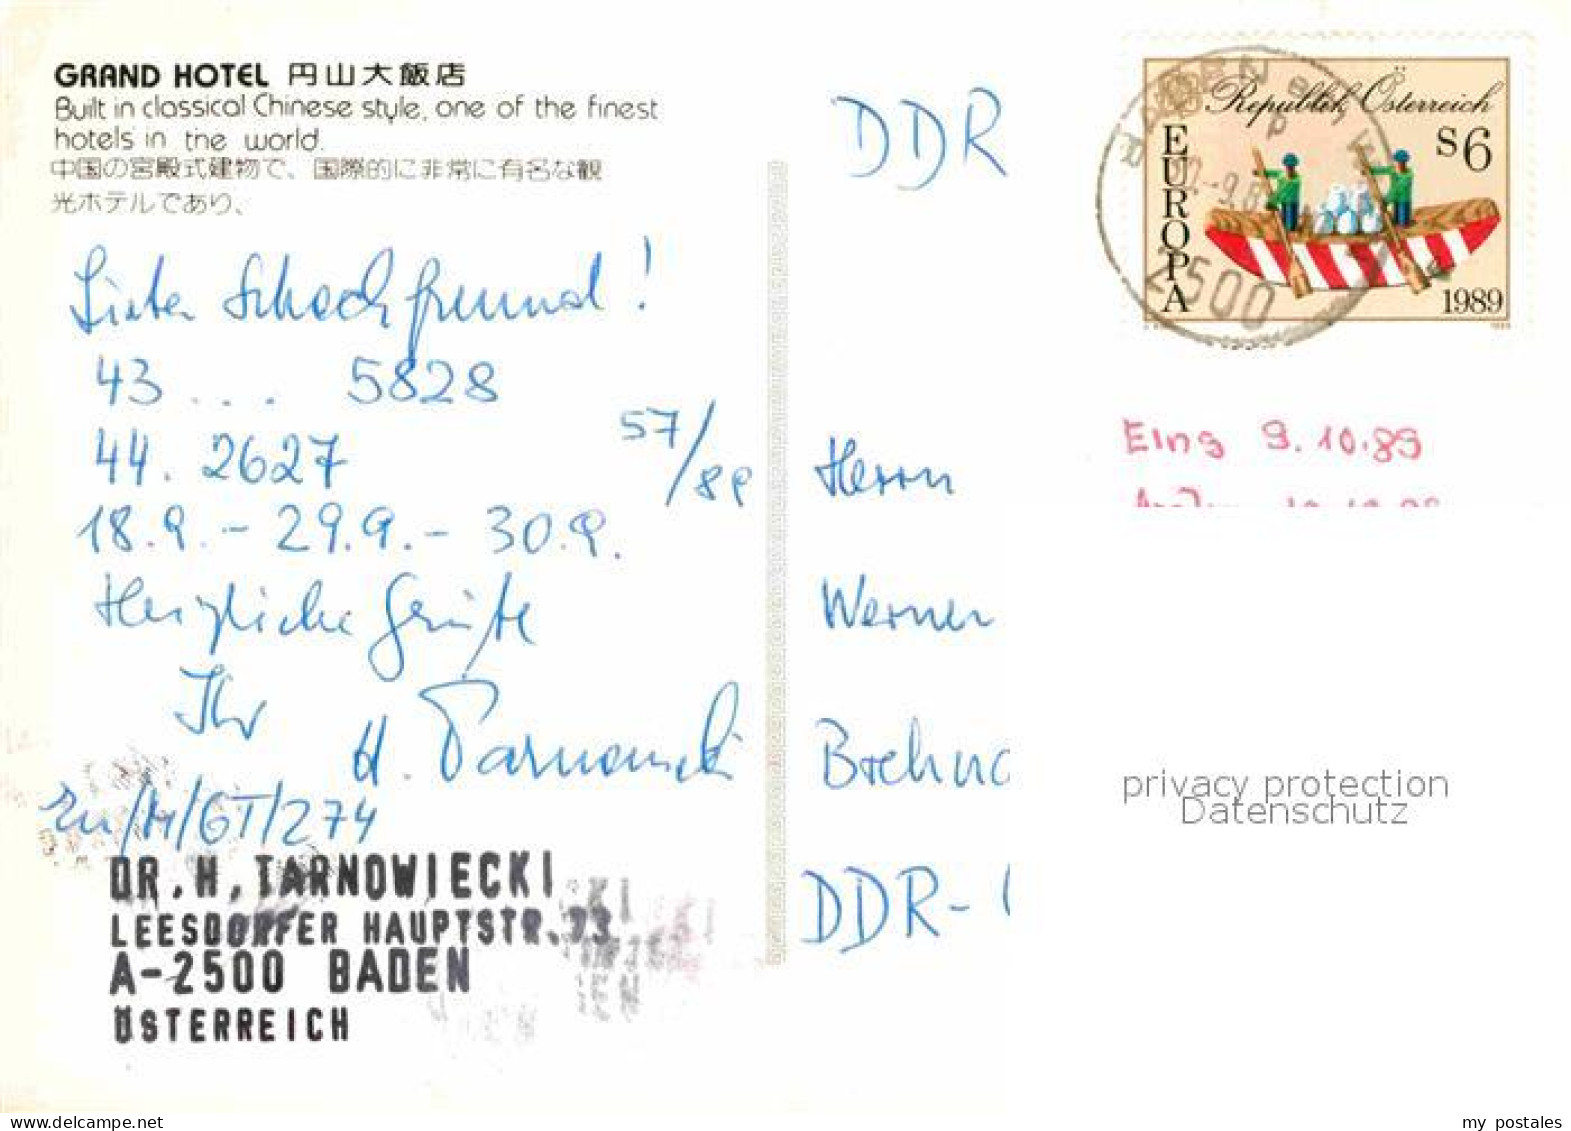 GRAND HOTEL 円山大飯店
Built in classical Chinese style, one of the finest
hotels in the world.
中国の宮殿式建物で、国際的に非常に有名な観
光ホテルであり、
Lieber Schachfreund!
43 ... 5828
44. 2627
57/89
18.9. - 29.9. - 30.9.
Herzliche Grüße
Ihr
H. Tarnowiecki
/M/GT/274
DR. H. TARNOWIECKI
LEESDORFER HAUPTSTR. 73
A-2500 BADEN
ÖSTERREICH
DDR
Republik Österreich
EUROPA
S6
1989
BADEN
2500
Eing 9.10.89
Herrn
Werner
DDR-
privacy protection
Datenschutz
my postales